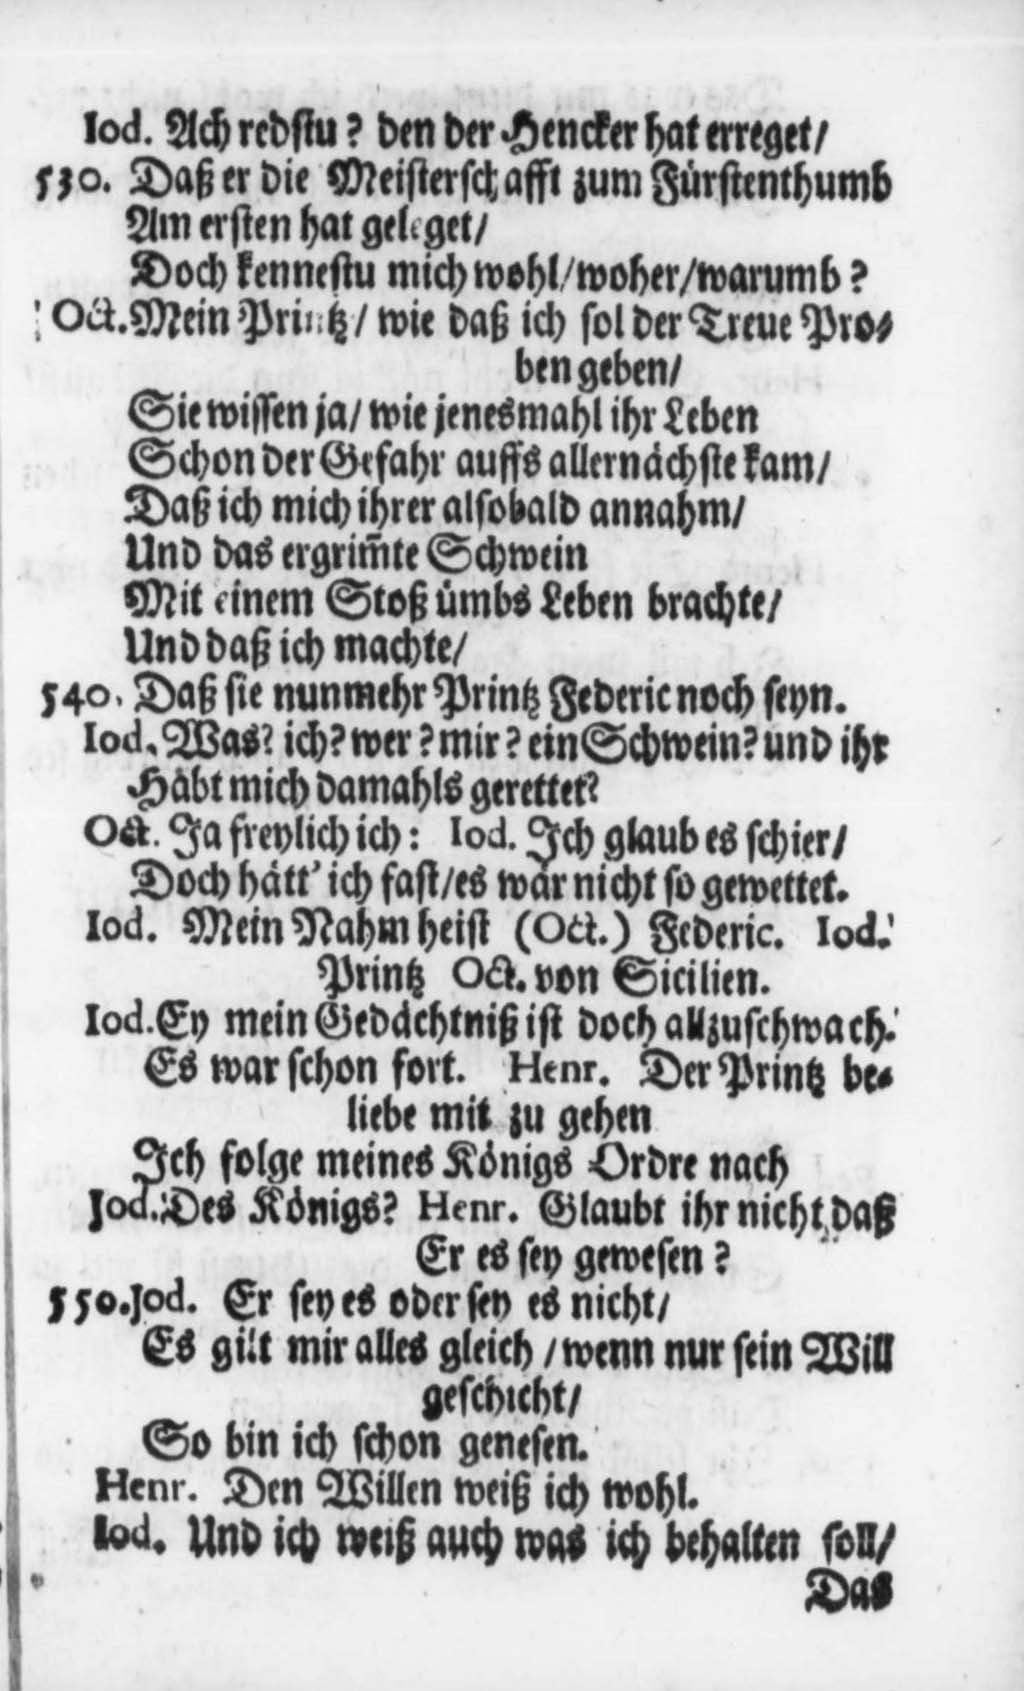 Iod. Ach redstu? den der Hencker hat erreget/
530. Daß er die Meisterschafft zum Fürstenthumb
Am ersten hat geleget/
Doch kennestu mich wohl/woher/warumb?
Oct. Mein Printz/ wie daß ich sol der Treue Pro-
ben geben/
Sie wissen ja/ wie jenesmahl ihr Leben
Schon der Gefahr auffs allernächste kam/
Daß ich mich ihrer alsobald annahm/
Und das ergrim̄te Schwein
Mit einem Stoß ümbs Leben brachte/
Und daß ich machte/
540. Daß sie nunmehr Printz Federic noch seyn.
Iod. Was? ich? wer? mir? ein Schwein? und ihr
Habt mich damahls gerettet?
Oct. Ja freylich ich: Iod. Ich glaub es schier/
Doch hätt' ich fast/es wär nicht so gewettet.
Iod. Mein Nahm heist (Oct.) Federic. Iod.
Printz Oct. von Sicilien.
Iod. Ey mein Gedächtniß ist doch allzuschwach.
Es war schon fort. Henr. Der Printz be-
liebe mit zu gehen
Ich folge meines Königs Ordre nach
Jod. Des Königs? Henr. Glaubt ihr nicht, daß
Er es sey gewesen?
550. Jod. Er sey es oder sey es nicht/
Es gilt mir alles gleich /wenn nur sein Will
geschicht/
So bin ich schon genesen.
Henr. Den Willen weiß ich wohl.
Iod. Und ich weiß auch was ich behalten soll/
Das